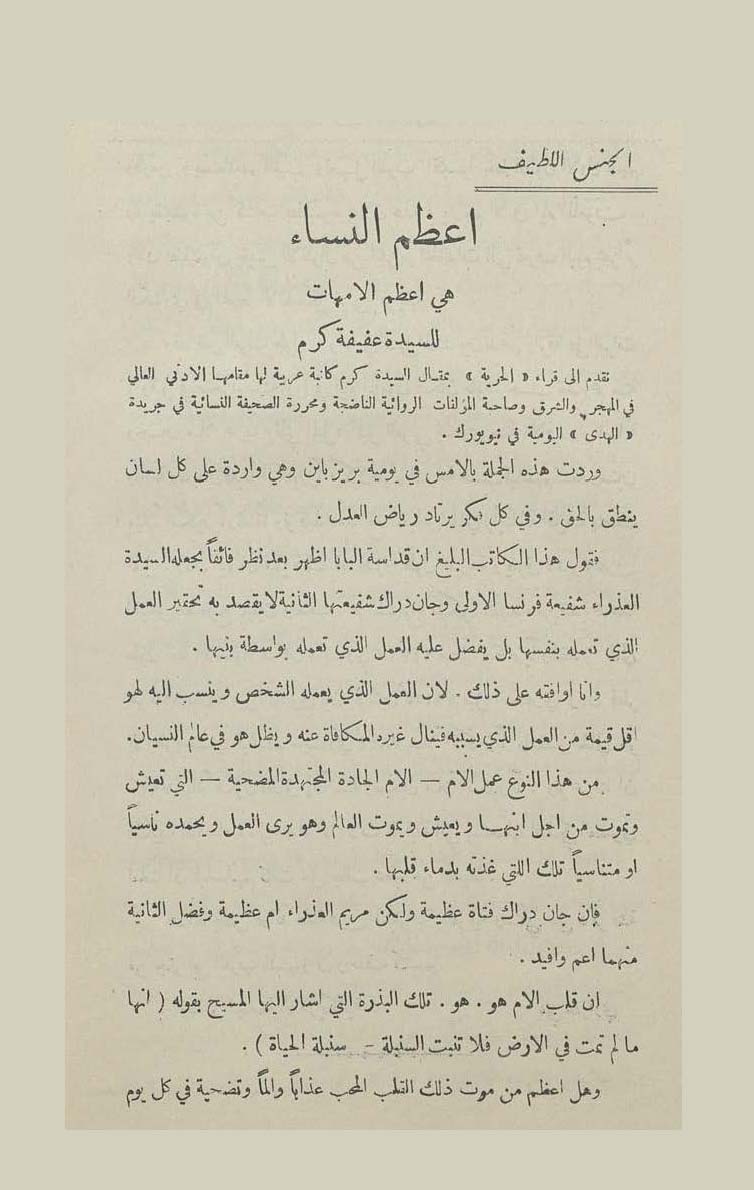 الجنس اللطيف
اعظم النساء
هي اعظم الامهات
للسيدة عفيفة كرم
نقدم الى قراء « الحرية » بمقال السيدة كرم كاتبة عربية لها مقامها الادبي العالي
في المهجر والشرق وصاحبة المؤلفات الروائية الناضجة ومحررة الصحيفة النسائية في جريدة
« الهدى » اليومية في نيويورك .
وردت هذه الجملة بالامس في يومية بريزباين وهي واردة على كل لسان
ينطق بالحق . وفي كل فكر يرتاد رياض العدل .
فقول هذا الكاتب البليغ ان قداسة البابا اظهر بعد نظر فائقاً بجعله السيدة
العذراء شفيعة فرنسا الاولى وجان دراك شفيعتها الثانية لا يقصد به تحقير العمل
الذي تعمله بنفسها بل يفضل عليه العمل الذي تعمله بواسطة بنيها .
وانا اوافقه على ذلك . لان العمل الذي يعمله الشخص وينسب اليه لهو
اقل قيمة من العمل الذي يسببه فينال غيره المكافاة عنه ويظل هو في عالم النسيان.
من هذا النوع عمل الام — الام الجادة المجتهدة المضحية — التي تعيش
وتموت من اجل ابنهـا ويعيش ويموت العالم وهو يرى العمل ويحمده ناسياً
او متناسياً تلك اللتي غذته بدماء قلبها .
فان جان دراك فتاة عظيمة ولكن مريم العذراء ام عظيمة وفضل الثانية
منهما اعم وافيد .
ان قلب الام هو . هو . تلك البذرة التي اشار اليها المسيح بقوله ( انها
ما لم تمت في الارض فلا تنبت السنبلة – سنبلة الحياة ) .
وهل اعظم من موت ذلك القلب المحب عذاباً والماً وتضحية في كل يوم